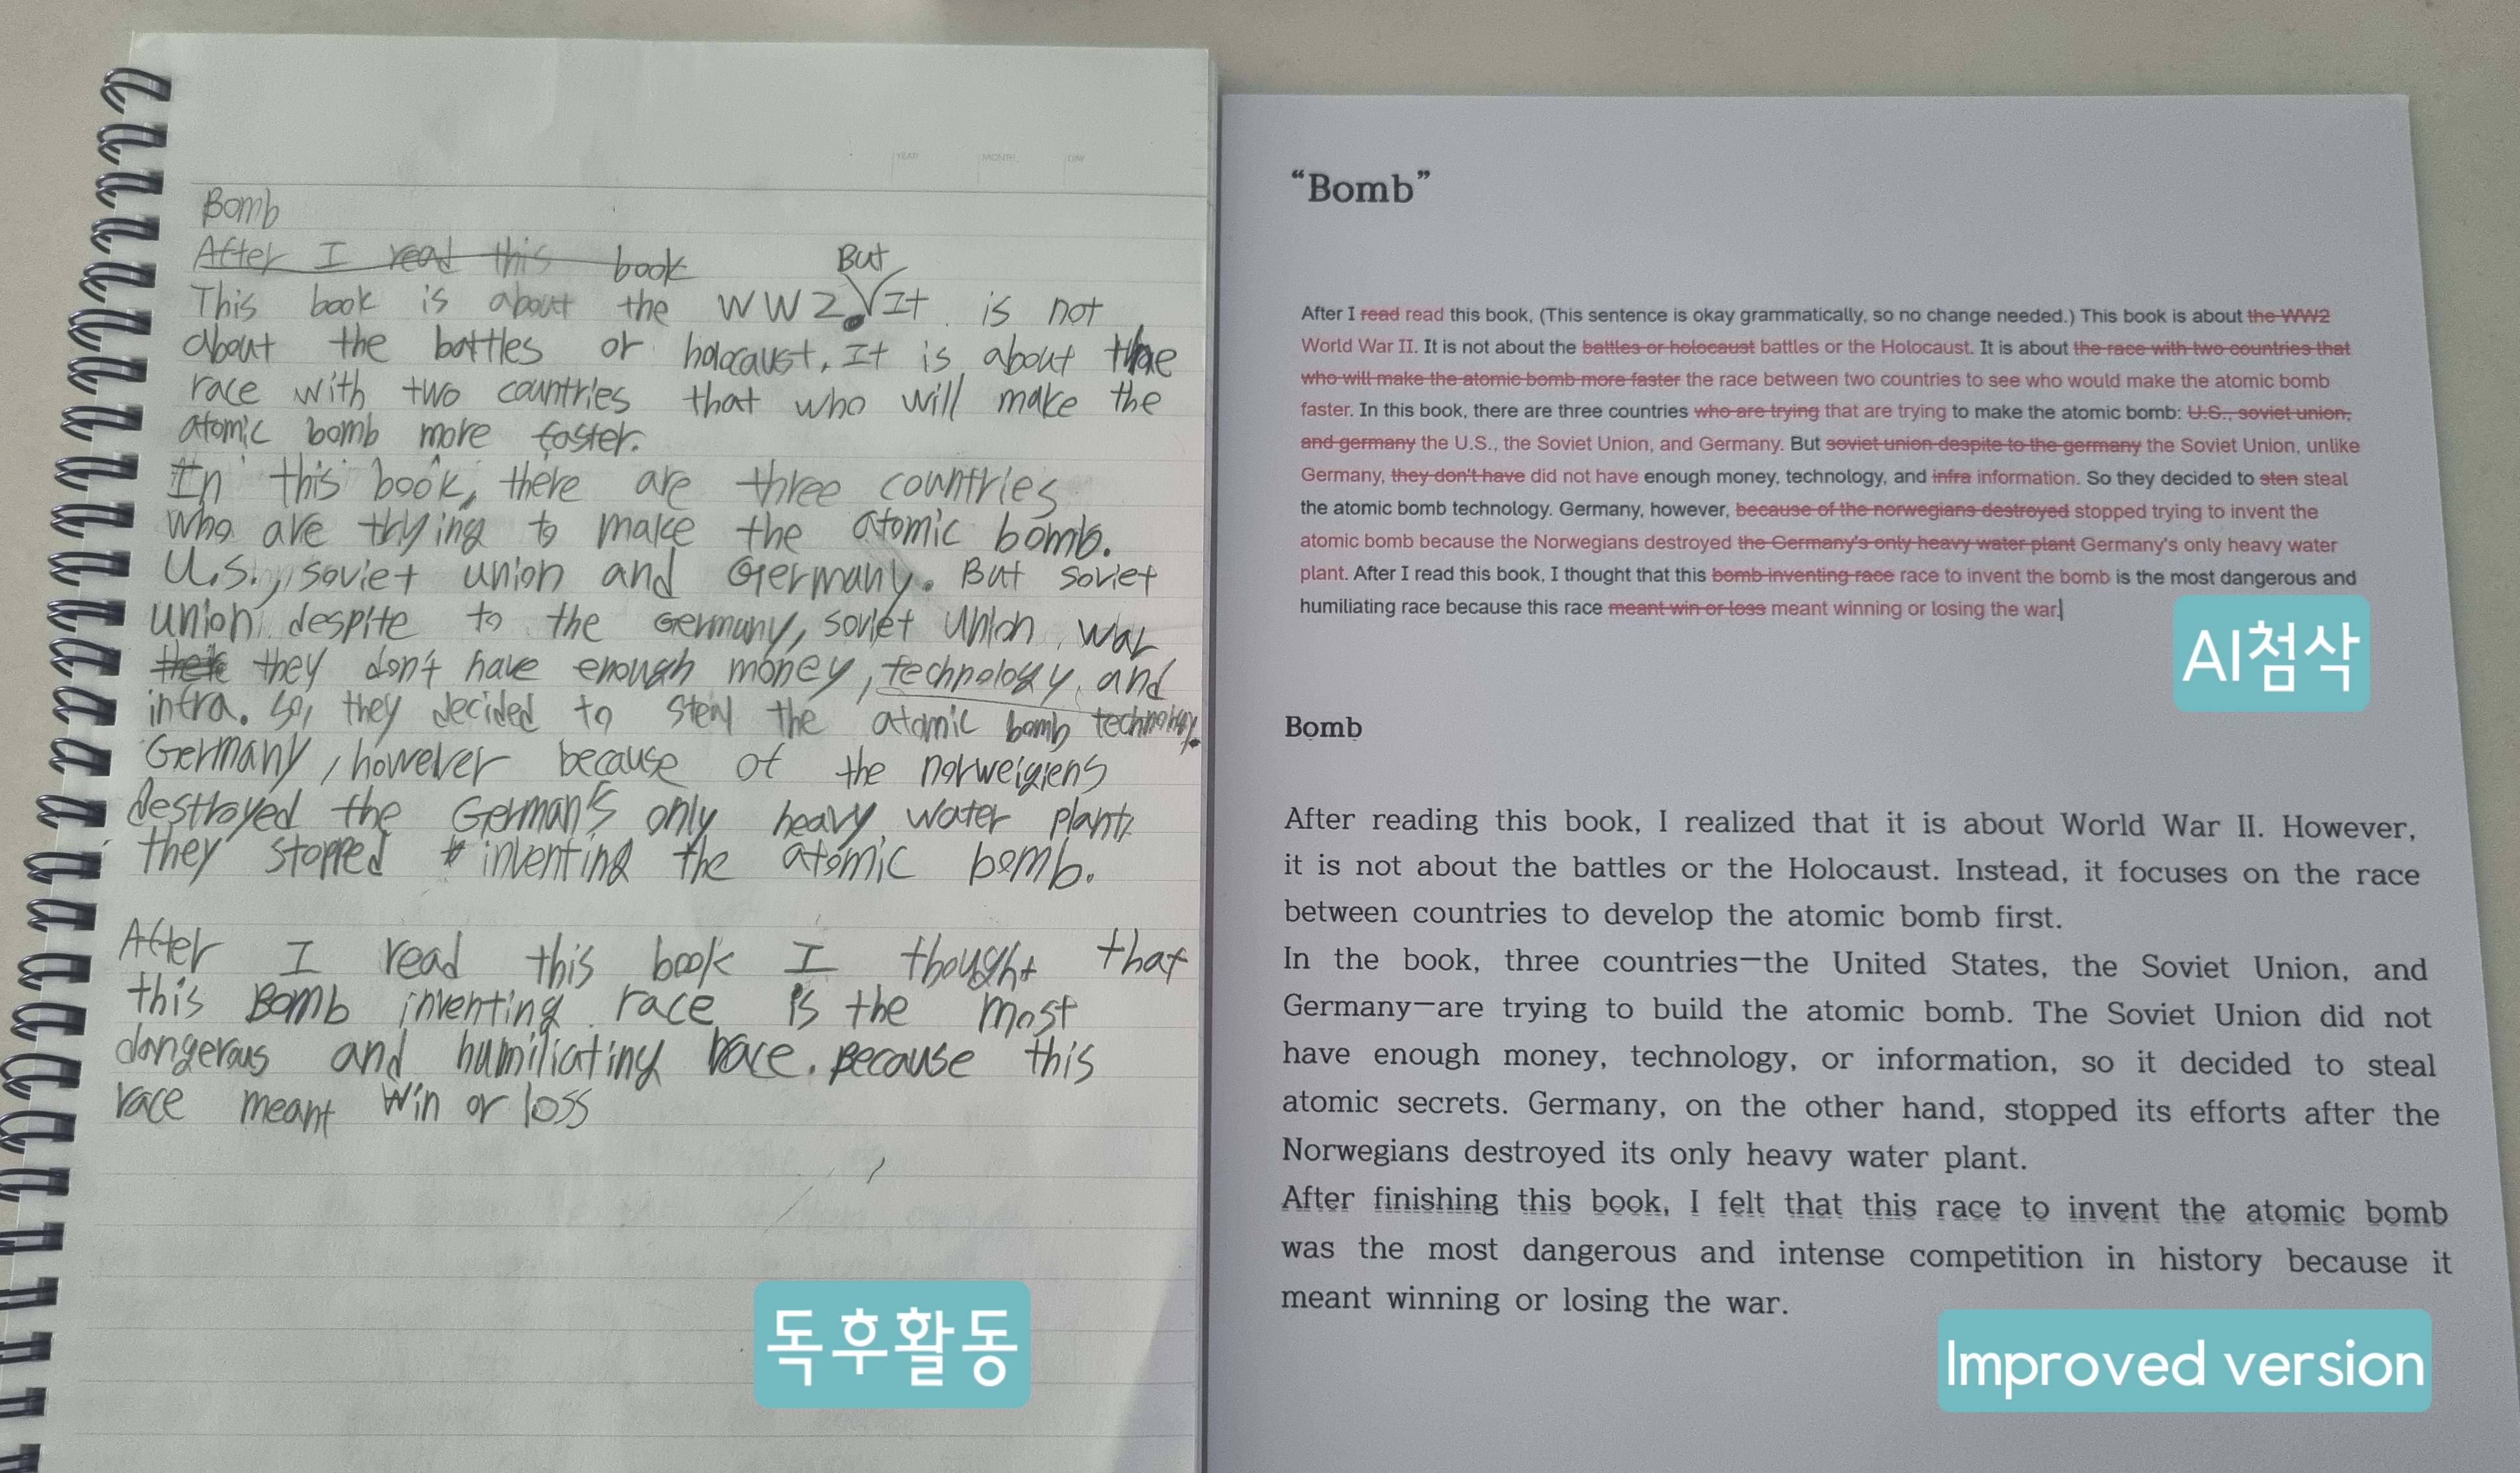 YEAR MONTH DAY
Bomb
After I read this book
But
This book is about the WW2. It is not
about the battles or holocaust. It is about the
race with two countries that who will make the
atomic bomb more faster.
In this book, there are three countries
who are trying to make the atomic bomb.
U.S., soviet union and Germany. But soviet
union despite to the germany, soviet union
they don't have enough money, technology, and
infra. so, they decided to steal the atomic bomb technology.
Germany, however because of the norweigiens
destroyed the German's only heavy water plant,
they stopped inventing the atomic bomb.
After I read this book I thought that
this Bomb inventing race is the most
dangerous and humiliating race. Because this
race meant win or loss
독후활동
“Bomb”
After I read read this book, (This sentence is okay grammatically, so no change needed.) This book is about the WW2
World War II. It is not about the battles or holocaust battles or the Holocaust. It is about the race with two countries that
who will make the atomic bomb more faster the race between two countries to see who would make the atomic bomb
faster. In this book, there are three countries who are trying that are trying to make the atomic bomb: U.S., soviet union,
and germany the U.S., the Soviet Union, and Germany. But soviet union despite to the germany the Soviet Union, unlike
Germany, they don't have did not have enough money, technology, and infra information. So they decided to sten steal
the atomic bomb technology. Germany, however, because of the norwegians destroyed stopped trying to invent the
atomic bomb because the Norwegians destroyed the Germany's only heavy water plant Germany's only heavy water
plant. After I read this book, I thought that this bomb inventing race race to invent the bomb is the most dangerous and
humiliating race because this race meant win or loss meant winning or losing the war.
AI첨삭
Bomb
After reading this book, I realized that it is about World War II. However,
it is not about the battles or the Holocaust. Instead, it focuses on the race
between countries to develop the atomic bomb first.
In the book, three countries—the United States, the Soviet Union, and
Germany—are trying to build the atomic bomb. The Soviet Union did not
have enough money, technology, or information, so it decided to steal
atomic secrets. Germany, on the other hand, stopped its efforts after the
Norwegians destroyed its only heavy water plant.
After finishing this book, I felt that this race to invent the atomic bomb
was the most dangerous and intense competition in history because it
meant winning or losing the war.
Improved version